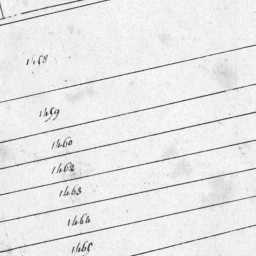 1458
1459
1460
1462
1463
1464
1465